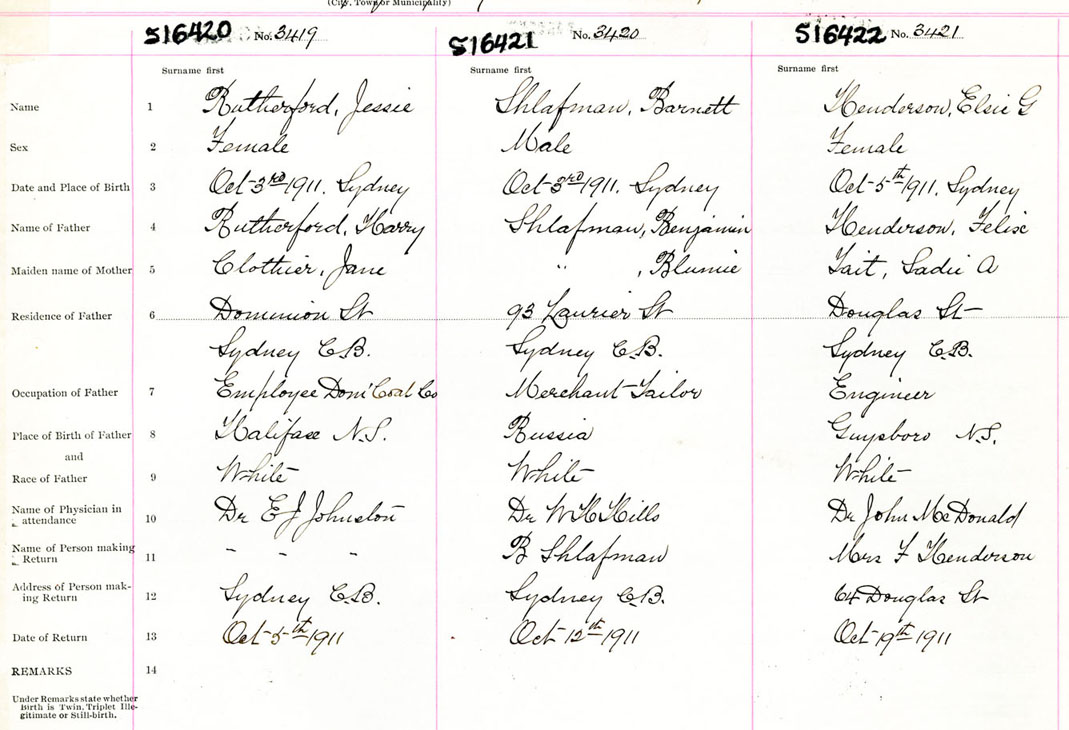 (City, Town or Municipality)
S16420 No. 3419 S16421 No. 3420 S16422 No. 3421
Surname first Surname first Surname first
Name 1 Rutherford, Jessie Shlafman, Barnett Henderson, Elsie G
Sex 2 Female Male Female
Date and Place of Birth 3 Oct 3rd 1911. Sydney Oct 3rd 1911. Sydney Oct 5th 1911, Sydney
Name of Father 4 Rutherford, Harry Shlafman, Benjamin Henderson, Felix
Maiden name of Mother 5 Clothier, Jane " , Blumie Tait, Sadie A
Residence of Father 6 Dominion St 93 Laurier St Douglas St
Sydney C.B. Sydney C.B. Sydney C.B.
Occupation of Father 7 Employee Dom' Coal Co Merchant Tailor Engineer
Place of Birth of Father 8 Halifax N.S. Russia Guysboro N.S.
and
Race of Father 9 White White White
Name of Physician in
attendance 10 Dr E J Johnston Dr W H Hills Dr John McDonald
Name of Person making
Return 11 - - - B Shlafman Mrs F Henderson
Address of Person mak-
ing Return 12 Sydney C.B. Sydney C.B. 64 Douglas St
Date of Return 13 Oct 5th 1911 Oct 12th 1911 Oct 19th 1911
REMARKS 14
Under Remarks state whether
Birth is Twin, Triplet Ille-
gitimate or Still-birth.